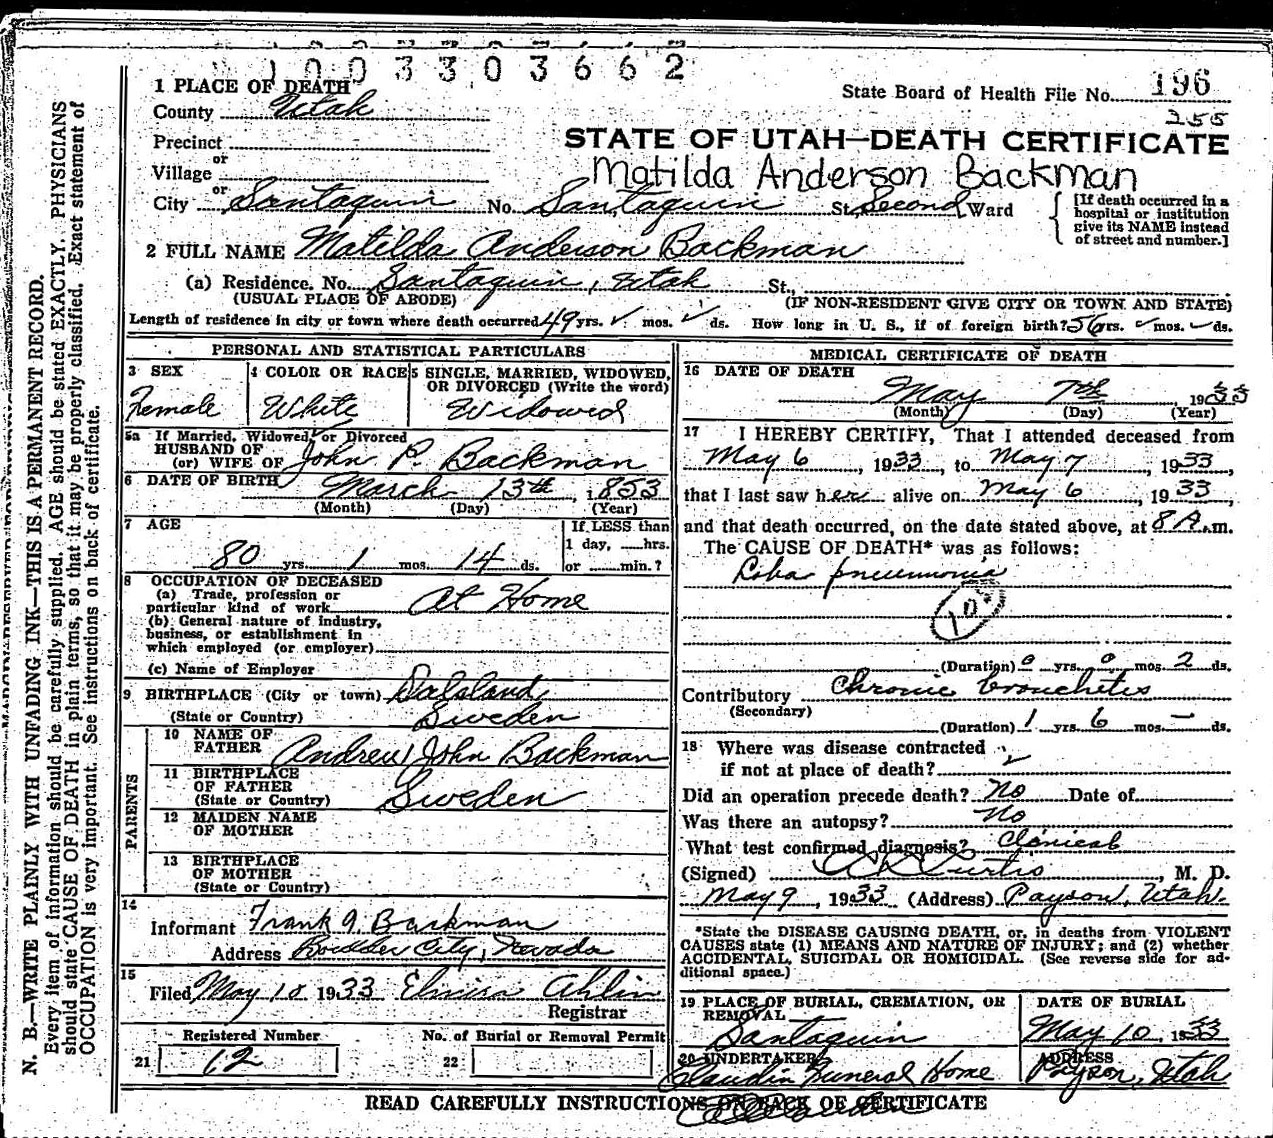 1 0 0 3 3 0 3 6 6 2
1 PLACE OF DEATH
State Board of Health File No. 196
County Utah
255
Precinct
STATE OF UTAH—DEATH CERTIFICATE
or
Village
Matilda Anderson Backman
or
City Santaquin No. Santaquin St. Second Ward
[If death occurred in a hospital or institution give its NAME instead of street and number.]
2 FULL NAME Matilda Anderson Backman
(a) Residence. No. Santaquin, Utah St.,
(USUAL PLACE OF ABODE) (IF NON-RESIDENT GIVE CITY OR TOWN AND STATE)
Length of residence in city or town where death occurred 49 yrs. mos. ds. How long in U. S., if of foreign birth? 56 yrs. mos. ds.
PERSONAL AND STATISTICAL PARTICULARS
3 SEX
Female
4 COLOR OR RACE
White
5 SINGLE, MARRIED, WIDOWED, OR DIVORCED (Write the word)
Widowed
5a If Married, Widowed, or Divorced
HUSBAND OF
(or) WIFE OF John P. Backman
6 DATE OF BIRTH March 13th, 1853
(Month) (Day) (Year)
7 AGE
80 yrs. 1 mos. 14 ds.
If LESS than
1 day, hrs.
or min.?
8 OCCUPATION OF DECEASED
(a) Trade, profession or
particular kind of work At Home
(b) General nature of industry,
business, or establishment in
which employed (or employer)
(c) Name of Employer
9 BIRTHPLACE (City or town) Dalsland
(State or Country) Sweden
PARENTS
10 NAME OF
FATHER Andrew John Backman
11 BIRTHPLACE
OF FATHER
(State or Country) Sweden
12 MAIDEN NAME
OF MOTHER
13 BIRTHPLACE
OF MOTHER
(State or Country)
14
Informant Frank J. Backman
Address Boulder City, Nevada
15
Filed May 10 1933 Elmira Ahlin
Registrar
Registered Number No. of Burial or Removal Permit
21 12 22
MEDICAL CERTIFICATE OF DEATH
16 DATE OF DEATH
May 7th, 1933
(Month) (Day) (Year)
17 I HEREBY CERTIFY, That I attended deceased from
May 6, 1933, to May 7, 1933,
that I last saw her alive on May 6, 1933
and that death occurred, on the date stated above, at 8 A.m.
The CAUSE OF DEATH* was as follows:
Loba pneumonia
(Duration) 0 yrs. 0 mos. 2 ds.
Contributory Chronic bronchetis
(Secondary)
(Duration) 1 yrs. 6 mos. — ds.
18 Where was disease contracted
if not at place of death?
Did an operation precede death? No Date of
Was there an autopsy? No
What test confirmed diagnosis? Clinical
(Signed) Curtis, M. D.
May 9, 1933 (Address) Payson, Utah.
*State the DISEASE CAUSING DEATH, or, in deaths from VIOLENT
CAUSES state (1) MEANS AND NATURE OF INJURY; and (2) whether
ACCIDENTAL, SUICIDAL OR HOMICIDAL. (See reverse side for ad-
ditional space.)
19 PLACE OF BURIAL, CREMATION, OR
REMOVAL
Santaquin
DATE OF BURIAL
May 10, 1933
20 UNDERTAKER
Claudin Funeral Home
ADDRESS
Payson, Utah
READ CAREFULLY INSTRUCTIONS ON BACK OF CERTIFICATE
N. B.—WRITE PLAINLY WITH UNFADING INK—THIS IS A PERMANENT RECORD.
Every item of information should be carefully supplied. AGE should be stated EXACTLY. PHYSICIANS
should state CAUSE OF DEATH in plain terms, so that it may be properly classified. Exact statement of
OCCUPATION is very important. See instructions on back of certificate.